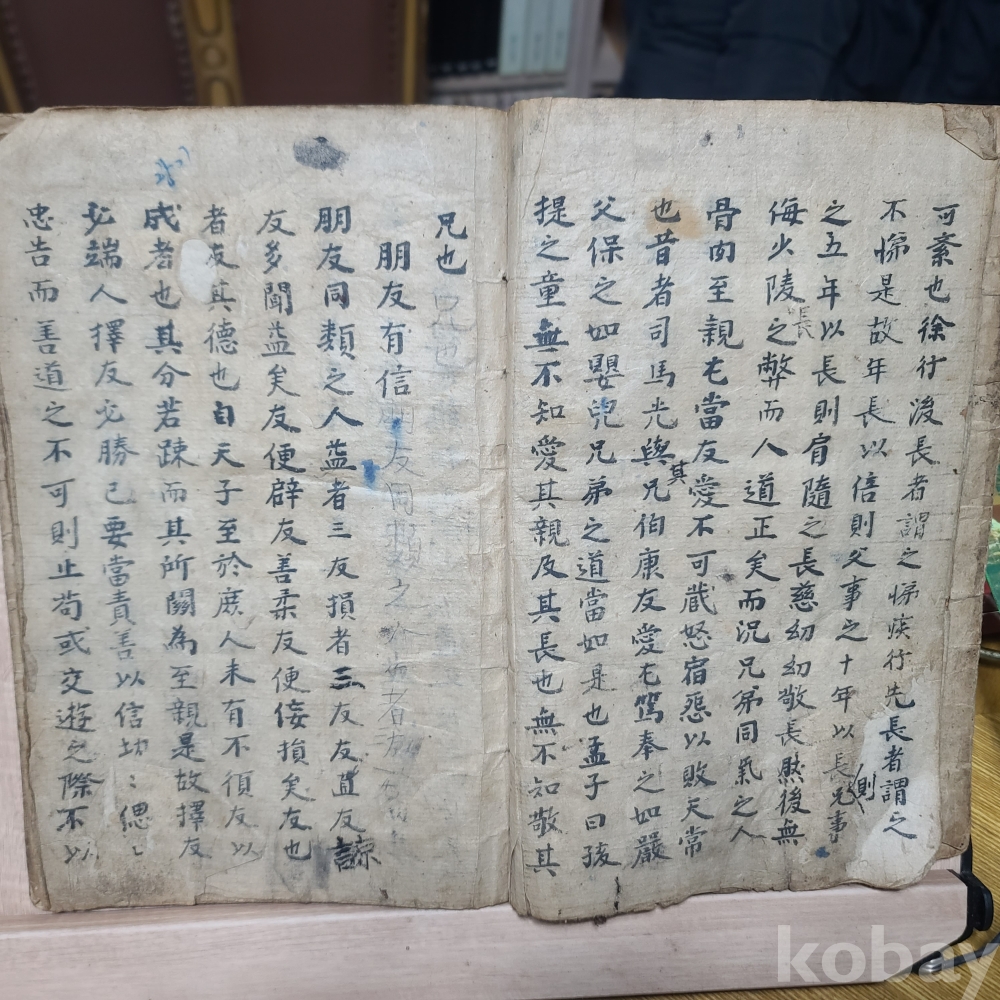 可紊也徐行後長者謂之悌疾行先長者謂之
不悌是故年長以倍則父事之十年以長則兄事
之五年以長則肩隨之長慈幼幼敬長然後無
侮少陵長之弊而人道正矣而況兄弟同氣之人
骨肉至親尤當友愛不可藏怒宿怨以敗天常
也昔者司馬光與其兄伯康友愛尤篤奉之如嚴
父保之如嬰兒兄弟之道當如是也孟子曰孩
提之童無不知愛其親及其長也無不知敬其
兄也
朋友有信
朋友同類之人益者三友損者三友友直友諒
友多聞益矣友便辟友善柔友便佞損矣友也
者友其德也自天子至於庶人未有不須友以
成者也其分若踈而其所關為至親是故擇友
必端人擇友必勝己要當責善以信切〻偲〻
忠告而善道之不可則止苟或交遊之際不以
kobay